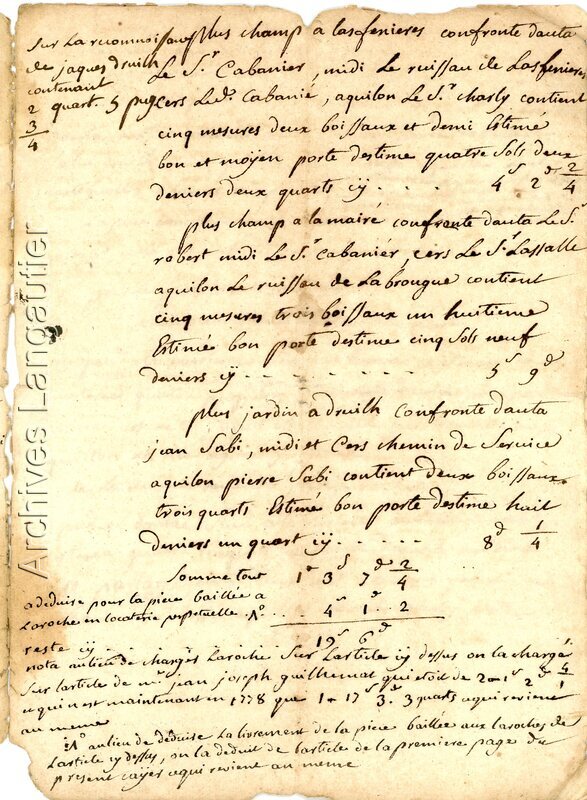 Sur La reconnoissance
de jaques druilh
contenant
2 quart. 5 pug
3/4
plus champ a las fenieres confronte dauta
Le Sr. Cabanier, midi Le ruissau de Lasfenieres
Cers Led. Cabanié, aquilon Le Sr. charly contient
cinq mesures deux boissaux et demi Estimé
bon et moyen porte destime quatre Sols deux
deniers deux quarts iÿ . . . 4s 2d 2/4
plus champ a la mairé confronte dauta Le Sr
robert midi Le Sr. Cabaniér, cers Le Sr. Lassalle
aquilon Le ruissau de Labrougue contient
cinq mesures trois boissaux un huitieme
Estimé bon porte destime cinq Sols neuf
deniers iÿ - - - - - - - 5s 9d
plus jardin a druilh confronte dauta
jean Sabi, midi et Cers chemin de Service
aquilon pierre Sabi contient deux boissaux
trois quarts Estimé bon porte destime huit
deniers un quart iÿ . - - - - . 8d 1/4
Somme tout 1 3s 7d 2/4
a deduire pour la piece baillée a
Laroche en locaterie perpetuelle. 1o . . . 4s 1d . . 2
reste iÿ . . 19s 6d
nota aulieu de chargés Laroche Sur Larticle iÿ dessus on la chargé
Sur larticle de mr. jean joseph guilhemat qui etoit de 2 1s 2d 4/1
et qui n est maintenant en 1778 que 1 17s 3d. 3 quarts aqui revient
au meme
1o aulieu de déduire La livrement de la piece baillée aux laroches de
Larticle iÿ dessus, on la deduit de larticle de la premiere page du
present cayer cequi revient au meme
Archives Langautier